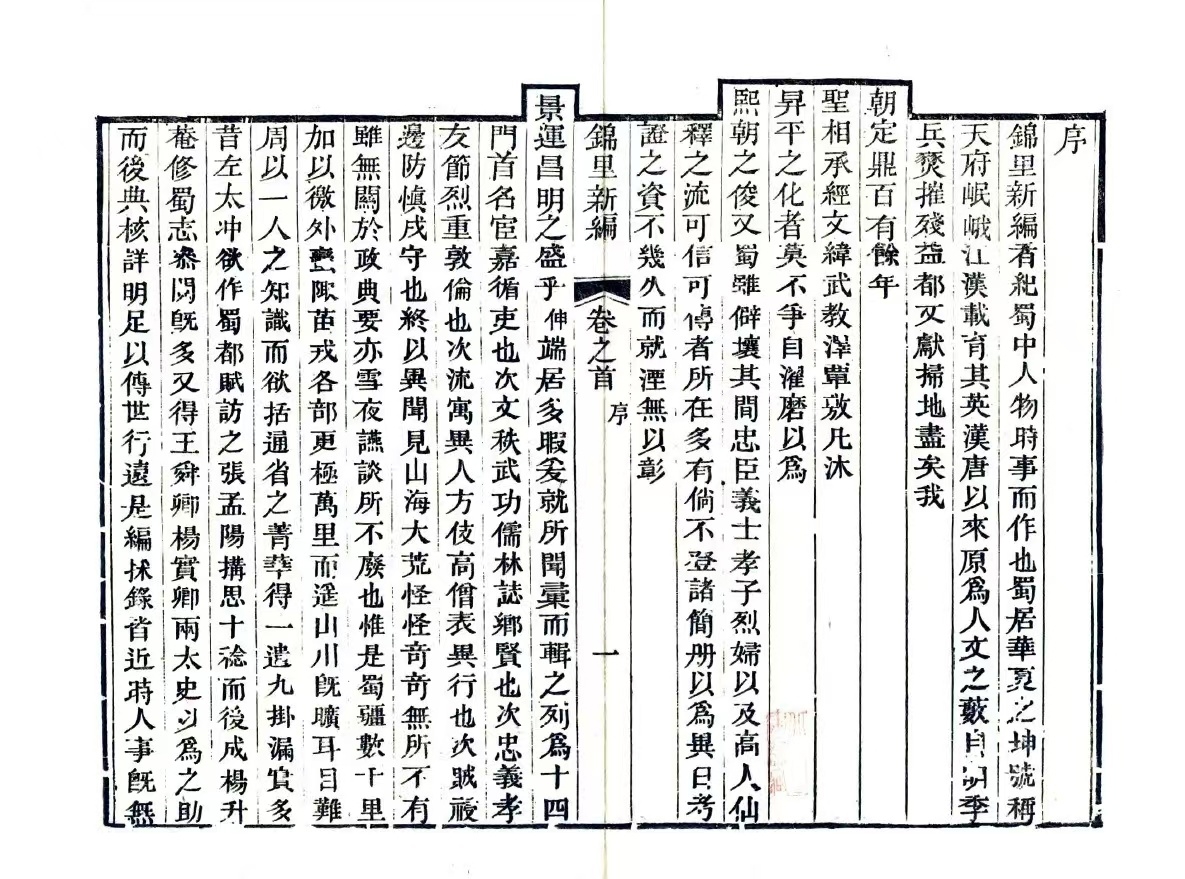 序
錦里新編者紀蜀中人物時事而作也蜀居華夏之坤號稱
天府岷峨江漢載育其英漢唐以來原爲人文之藪自明季
兵燹摧殘益都文獻掃地盡矣我
朝定鼎百有餘年
聖相承經文緯武教澤覃敷凡沐
昇平之化者莫不爭自濯磨以爲
熙朝之俊乂蜀雖僻壤其間忠臣義士孝子烈婦以及高人仙
釋之流可信可傳者所在多有倘不登諸簡册以爲異日考
證之資不幾久而就湮無以彰
錦里新編 卷之首 序 一
景運昌明之盛乎伸端居多暇爰就所聞彙而輯之列爲十四
門首名宦嘉循吏也次文秩武功儒林誌鄉賢也次忠義孝
友節烈重敦倫也次流寓異人方伎高僧表異行也次賊祲
邊防慎戎守也終以異聞見山海大荒怪怪奇奇無所不有
雖無關於政典要亦雪夜讌談所不廢也惟是蜀疆數千里
加以徼外蠻陬苗戎各部更極萬里而遥山川旣曠耳目難
周以一人之知識而欲括通省之菁華得一遺九掛漏實多
昔左太冲欲作蜀都賦訪之張孟陽搆思十稔而後成楊升
菴修蜀志叅閱旣多又得王舜卿楊實卿兩太史以爲之助
而後典核詳明足以傳世行遠是編採錄皆近時人事旣無